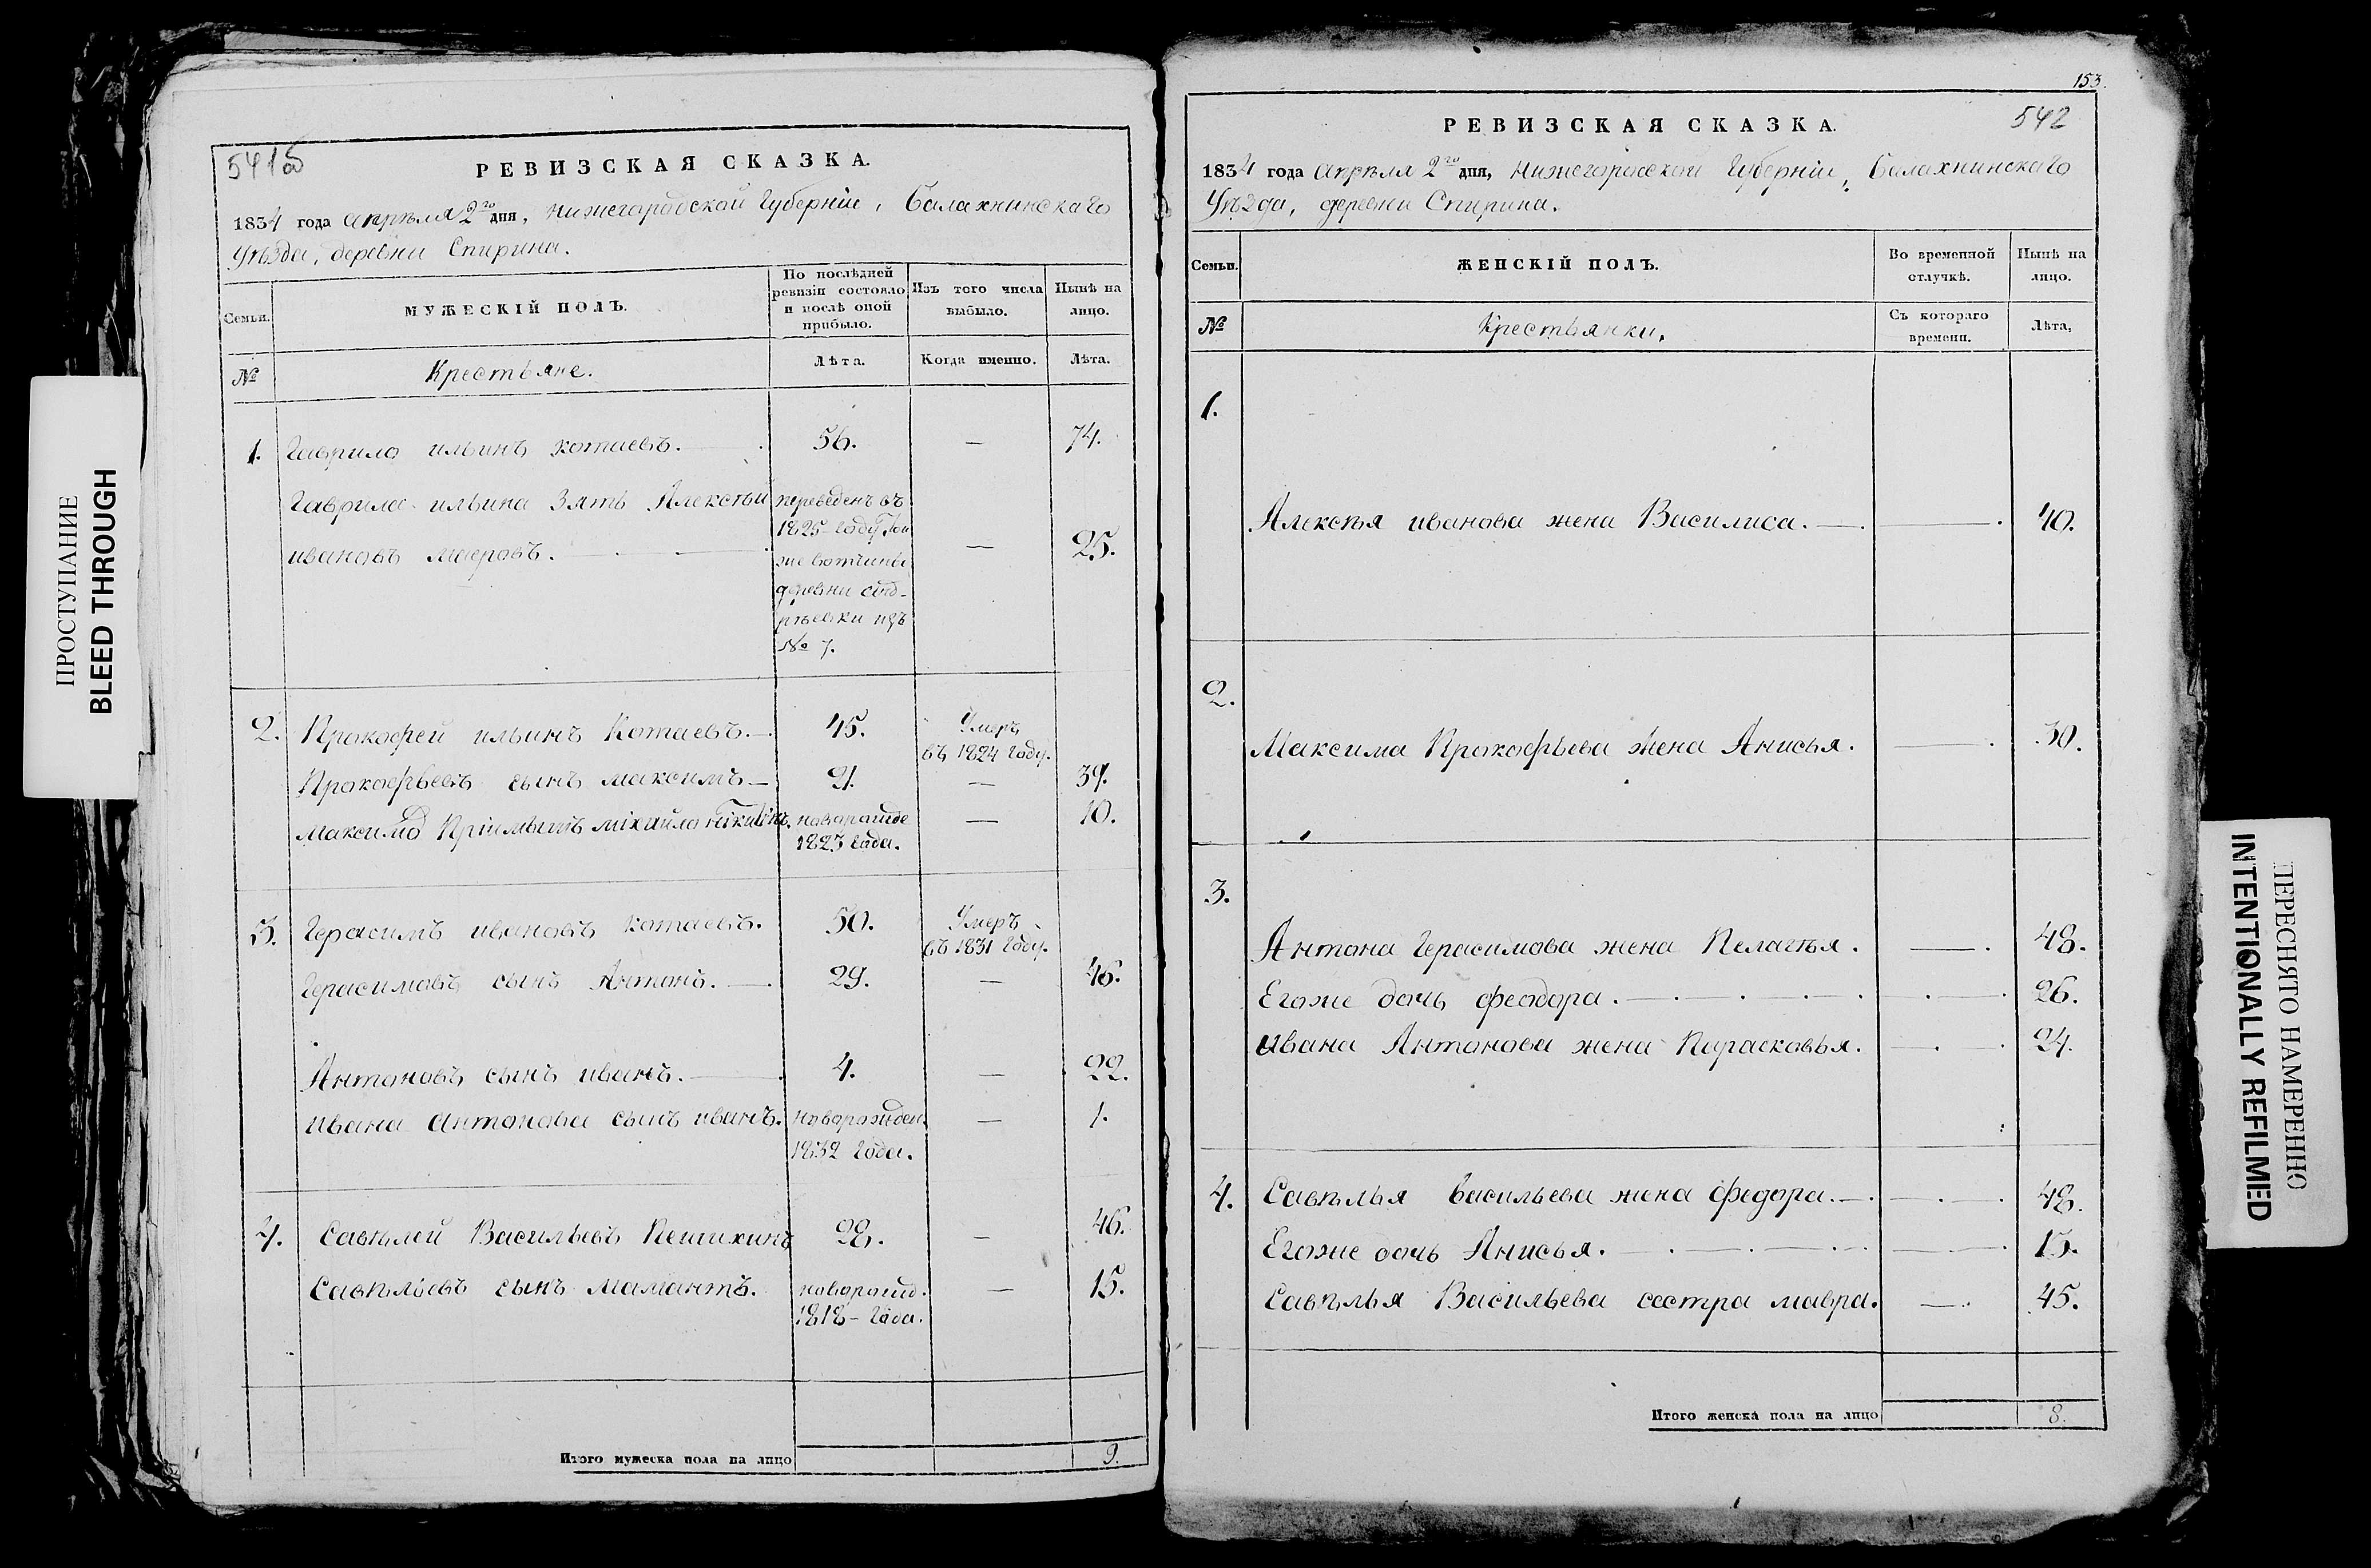 ПРОСТУПАНИЕ
BLEED THROUGH
541об
РЕВИЗСКАЯ СКАЗКА.
1834 года апрѣля 2го дня, Нижегородской Губерніи, Балахнинскаго
Уѣзда, деревни Спирина.
Семьи.
МУЖЕСКІЙ ПОЛЪ.
По послѣдней ревизіи состояло и послѣ оной прибыло.
Изъ того числа выбыло.
Нынѣ на лицо.
№
Крестьяне.
Лѣта.
Когда именно.
Лѣта.
1. Гаврило ильинъ котаевъ. 56. — 74.
Гаврила ильина Зять Алексѣй
ивановъ — 25.
переведенъ въ
1825 году той
же вотчины
деревни
изъ
№ 7.
2. Прокофей ильинъ Котаевъ. 45. Умеръ
въ 1824 году.
Прокофьевъ сынъ максимъ 21. — 39.
Максима Пріимышъ михайло никитинъ. новорожде — 10.
1823 года.
3. Герасимъ ивановъ котаевъ. 50. Умеръ
въ 1831 году.
Герасимовъ сынъ Антонъ. 29. — 46.
Антоновъ сынъ иванъ. 4. — 22.
ивана антонова сынъ иванъ. новорожден. — 1.
1832 года.
4. Савѣлей Васильевъ Пешихинъ 28. — 46.
Савѣльевъ сынъ мамантъ. новорожд. — 15.
1818 года.
Итого мужеска пола на лицо 9.
153.
542
РЕВИЗСКАЯ СКАЗКА.
1834 года апрѣля 2го дня, Нижегородской Губерніи, Балахнинскаго
Уѣзда, деревни Спирина.
Семьи.
ЖЕНСКІЙ ПОЛЪ.
Во временной отлучкѣ.
Нынѣ на лицо.
№
Крестьянки.
Съ котораго времени.
Лѣта,
1.
Алексѣя иванова жена Василиса. — 40.
2.
Максима Прокофьева жена Анисья. — 30.
3.
Антона Герасимова жена Пелагѣя. — 48.
Егоже дочь феодора. 26.
ивана Антонова жена Парасковья. — 24.
4. Савѣлья васильева жена федора. — 48.
Егоже дочь Анисья. — 15.
Савѣлья Васильева сестра мавра. — 45.
Итого женска пола на лицо 8.
ПЕРЕСНЯТО НАМЕРЕННО
INTENTIONALLY REFILMED